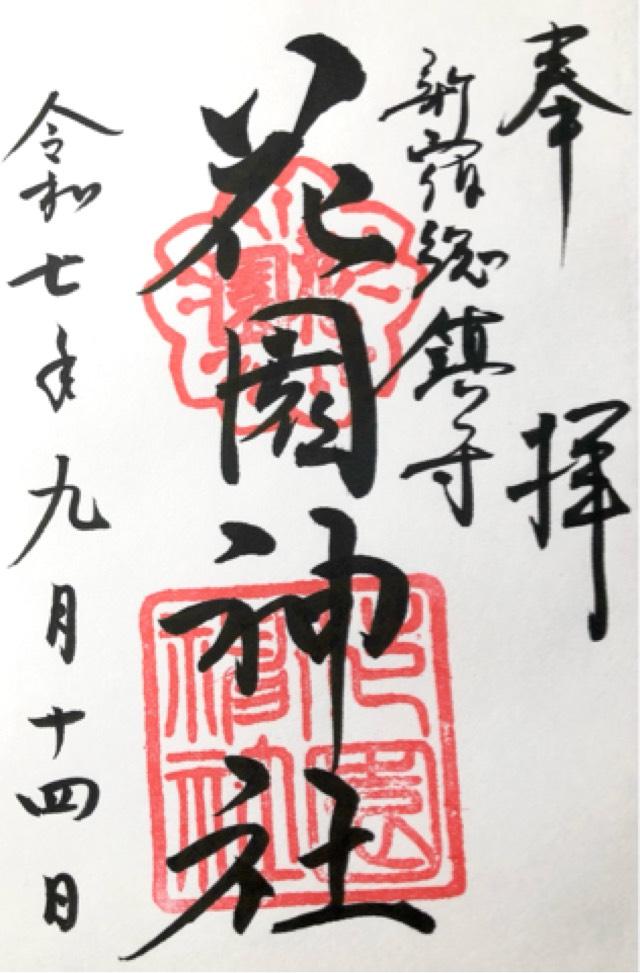 奉拝
新宿総鎮守
花園神社
令和七年九月十四日
花園神社